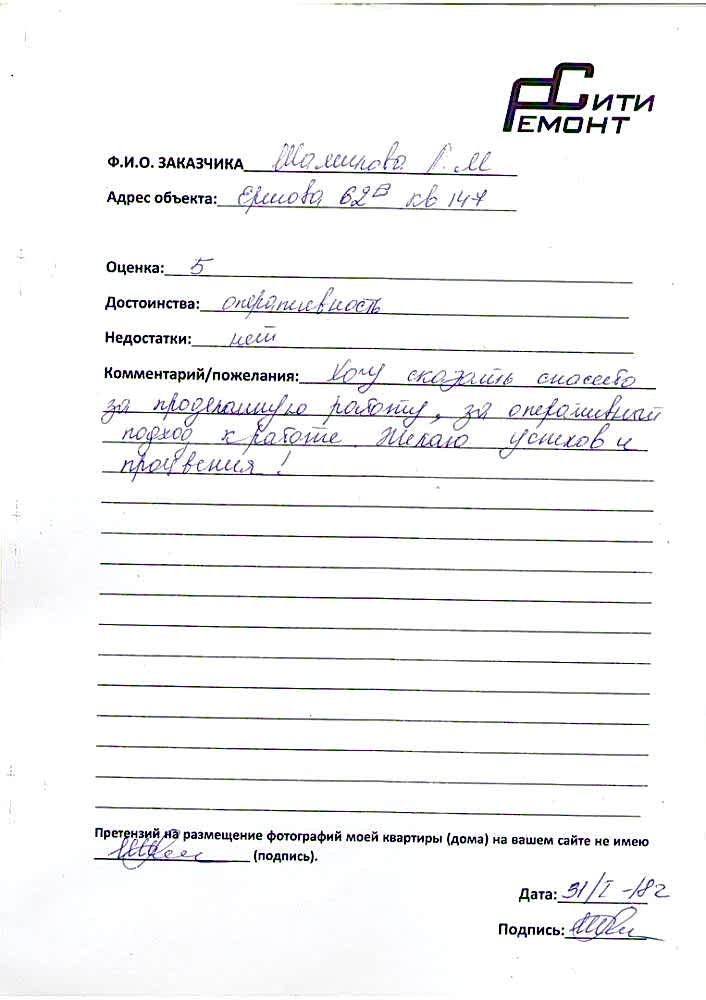 СИТИ
РЕМОНТ
Ф.И.О. ЗАКАЗЧИКА Шамикова Г. М
Адрес объекта: Ершова 62В кв 147
Оценка: 5
Достоинства: оперативность
Недостатки: нет
Комментарий/пожелания: Хочу сказать спасибо
за проделанную работу, за оперативный
подход к работе. Желаю успехов и
процвения!
Претензий на размещение фотографий моей квартиры (дома) на вашем сайте не имею
(подпись).
Дата: 31/I -18г
Подпись: